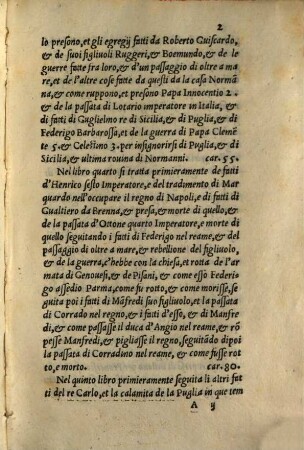 2
lo presono, et gli egregij fatti da Roberto Guiscardo,
& de suoi figliuoli Ruggeri, & Boemundo, & de le
guerre fatte fra loro, & d'un passaggio di oltre a ma
re, et de l'altre cose fatte da questi da la casa Normā
na, & come ruppono, et presono Papa Innocentio 2.
& de la passata di Lotario imperatore in Italia, &
di fatti di Guglielmo re di Sicilia, & di Puglia, & di
Federigo Barbarossa, et de la guerra di Papa Clemē
te 5. & Celestino 3. per insignorirsi di Puglia, & di
Sicilia, & ultima rouina di Normanni. car. 55.
Nel libro quarto si tratta primieramente de fatti
d'Henrico sesto Imperatore, e del tradimento di Mar
quardo nell'occupare il regno di Napoli, e di fatti di
Gualtiero da Brenna, & presa, & morte di quello, &
de la passata d'Ottone quarto Imperatore, e morte di
quello seguitando i fatti di Federigo nel reame, & del
passaggio di oltre a mare, & rebellione del figliuolo,
& de la guerra, c'hebbe con la chiesa, et rotta de l'ar
mata di Genouesi, & de Pisani, & come esso Federi
go assedio Parma, come fu rotto, & come morisse, se
guita poi i fatti di Māfredi suo figliuolo, et la passata
di Corrado nel regno, et i fatti d'esso, & di Manfre
di, & come passasse il duca d'Angio nel reame, & rō
pesse Manfredi, & pigliasse il regno, seguitādo dipoi
la passata di Corradino nel reame, & come fusse rot
to, e morto. car. 80.
Nel quinto libro primieramente seguita li altri fat
ti del re Carlo, et la calamita de la Puglia in que tem
A ij